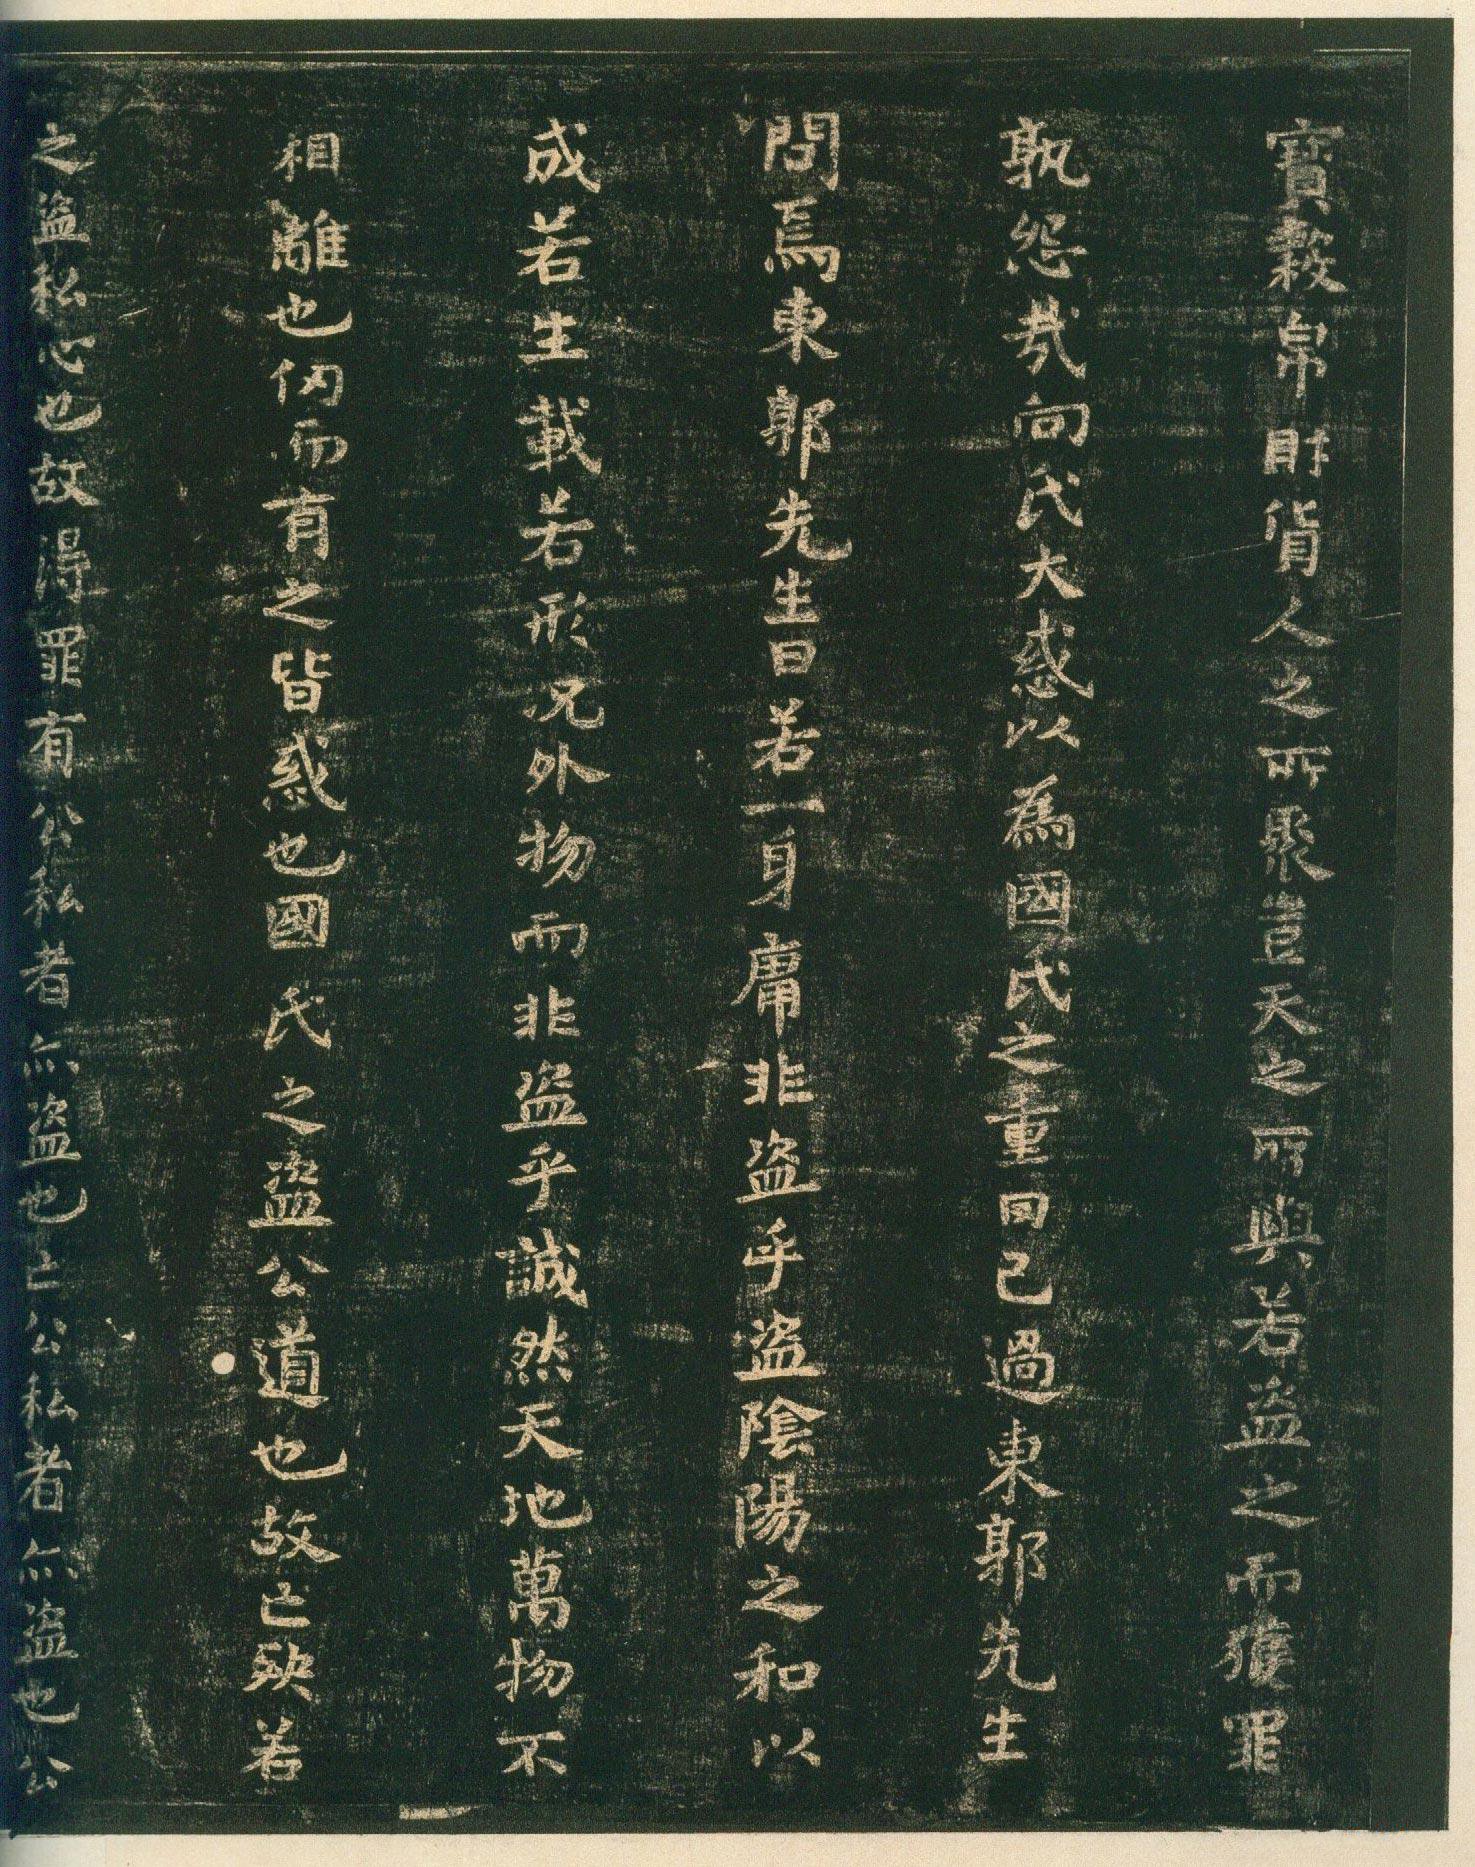 寶穀帛財貨人之所聚豈天之所與若盗之而獲罪
孰怨哉向氏大惑以為國氏之重罔己過東郭先生
問焉東郭先生曰若一身庸非盗乎盗陰陽之和以
成若生載若形况外物而非盗乎誠然天地萬物不
相離也仞而有之皆惑也國氏之盗公道也故亡殃若
之盗私心也故得罪有公私者亦盗也亡公私者亦盗也公